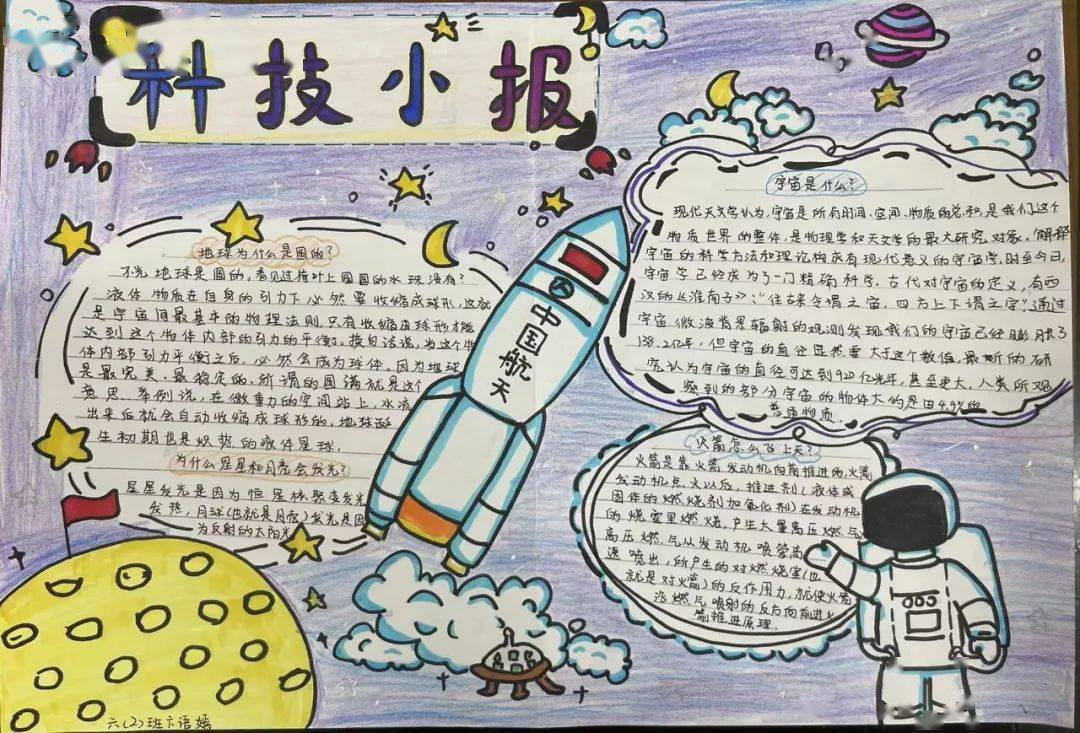 科技小报
地球为什么是圆的?
不说地球是圆的,看见过荷叶上圆圆的水珠没有?
液体物质在自身的引力下必然要收缩成球形,这就
是宇宙间最基本的物理法则,只有收缩成球形才能
达到这个物体内部的引力的平衡。换句话说,当这个物
体内部引力平衡之后,必然会成为球体。因为地球
是最完美、最稳定的,所谓的圆满就是这个
意思。举例说,在微重力的空间站上,水流
出来后就会自动收缩成球形的,地球诞
生初期也是炽热的液体星球.
为什么星星和月亮会发光?
星星发光是因为恒星核聚变发光
发热,月球(也就是月亮)发光是因
为反射的太阳光
中国航天
宇宙是什么?
现代天文学认为,宇宙是所有时间、空间、物质的总和,是我们这个
物质世界的整体,是物理学和天文学的最大研究对象。解释
宇宙的科学方法和理论构成有现代意义的宇宙学.时至今日,
宇宙学已经成为了一门精确科学.古代对宇宙的定义,有西
汉的《淮南子》:“往古来今谓之宙,四方上下谓之宇”通过
宇宙微波背景辐射的观测发现我们的宇宙已经膨胀了
138.2亿年,但宇宙的直径显然要大于这个数值,最新的研
究认为宇宙的直径可达到920亿光年,甚至更大,人类所观
察到的部分宇宙的物体大约是由4.9%的
普通物质.
火箭怎么飞上天?
火箭是靠火箭发动机向前推进的,火箭
发动机点火以后,推进剂(液体或
固体的燃烧剂加氧化剂)在发动机
的烧室里燃烧,产生大量高压燃气
高压燃气从发动机喷管高
速喷出,所产生的对燃烧室(也
就是对火箭)的反作用力,就使火箭
沿燃气喷射的反方向前进火
箭推进原理.
六(2)班 语嫣